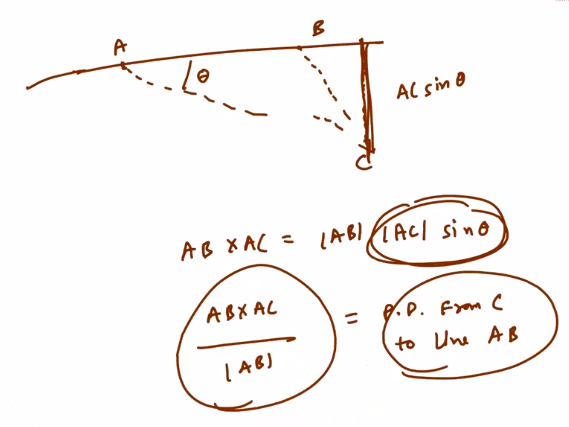 A
B
θ
AC sin θ
C
AB × AC = |AB| |AC| sin θ
AB × AC
|AB|
=
P.D. From C
to Line AB